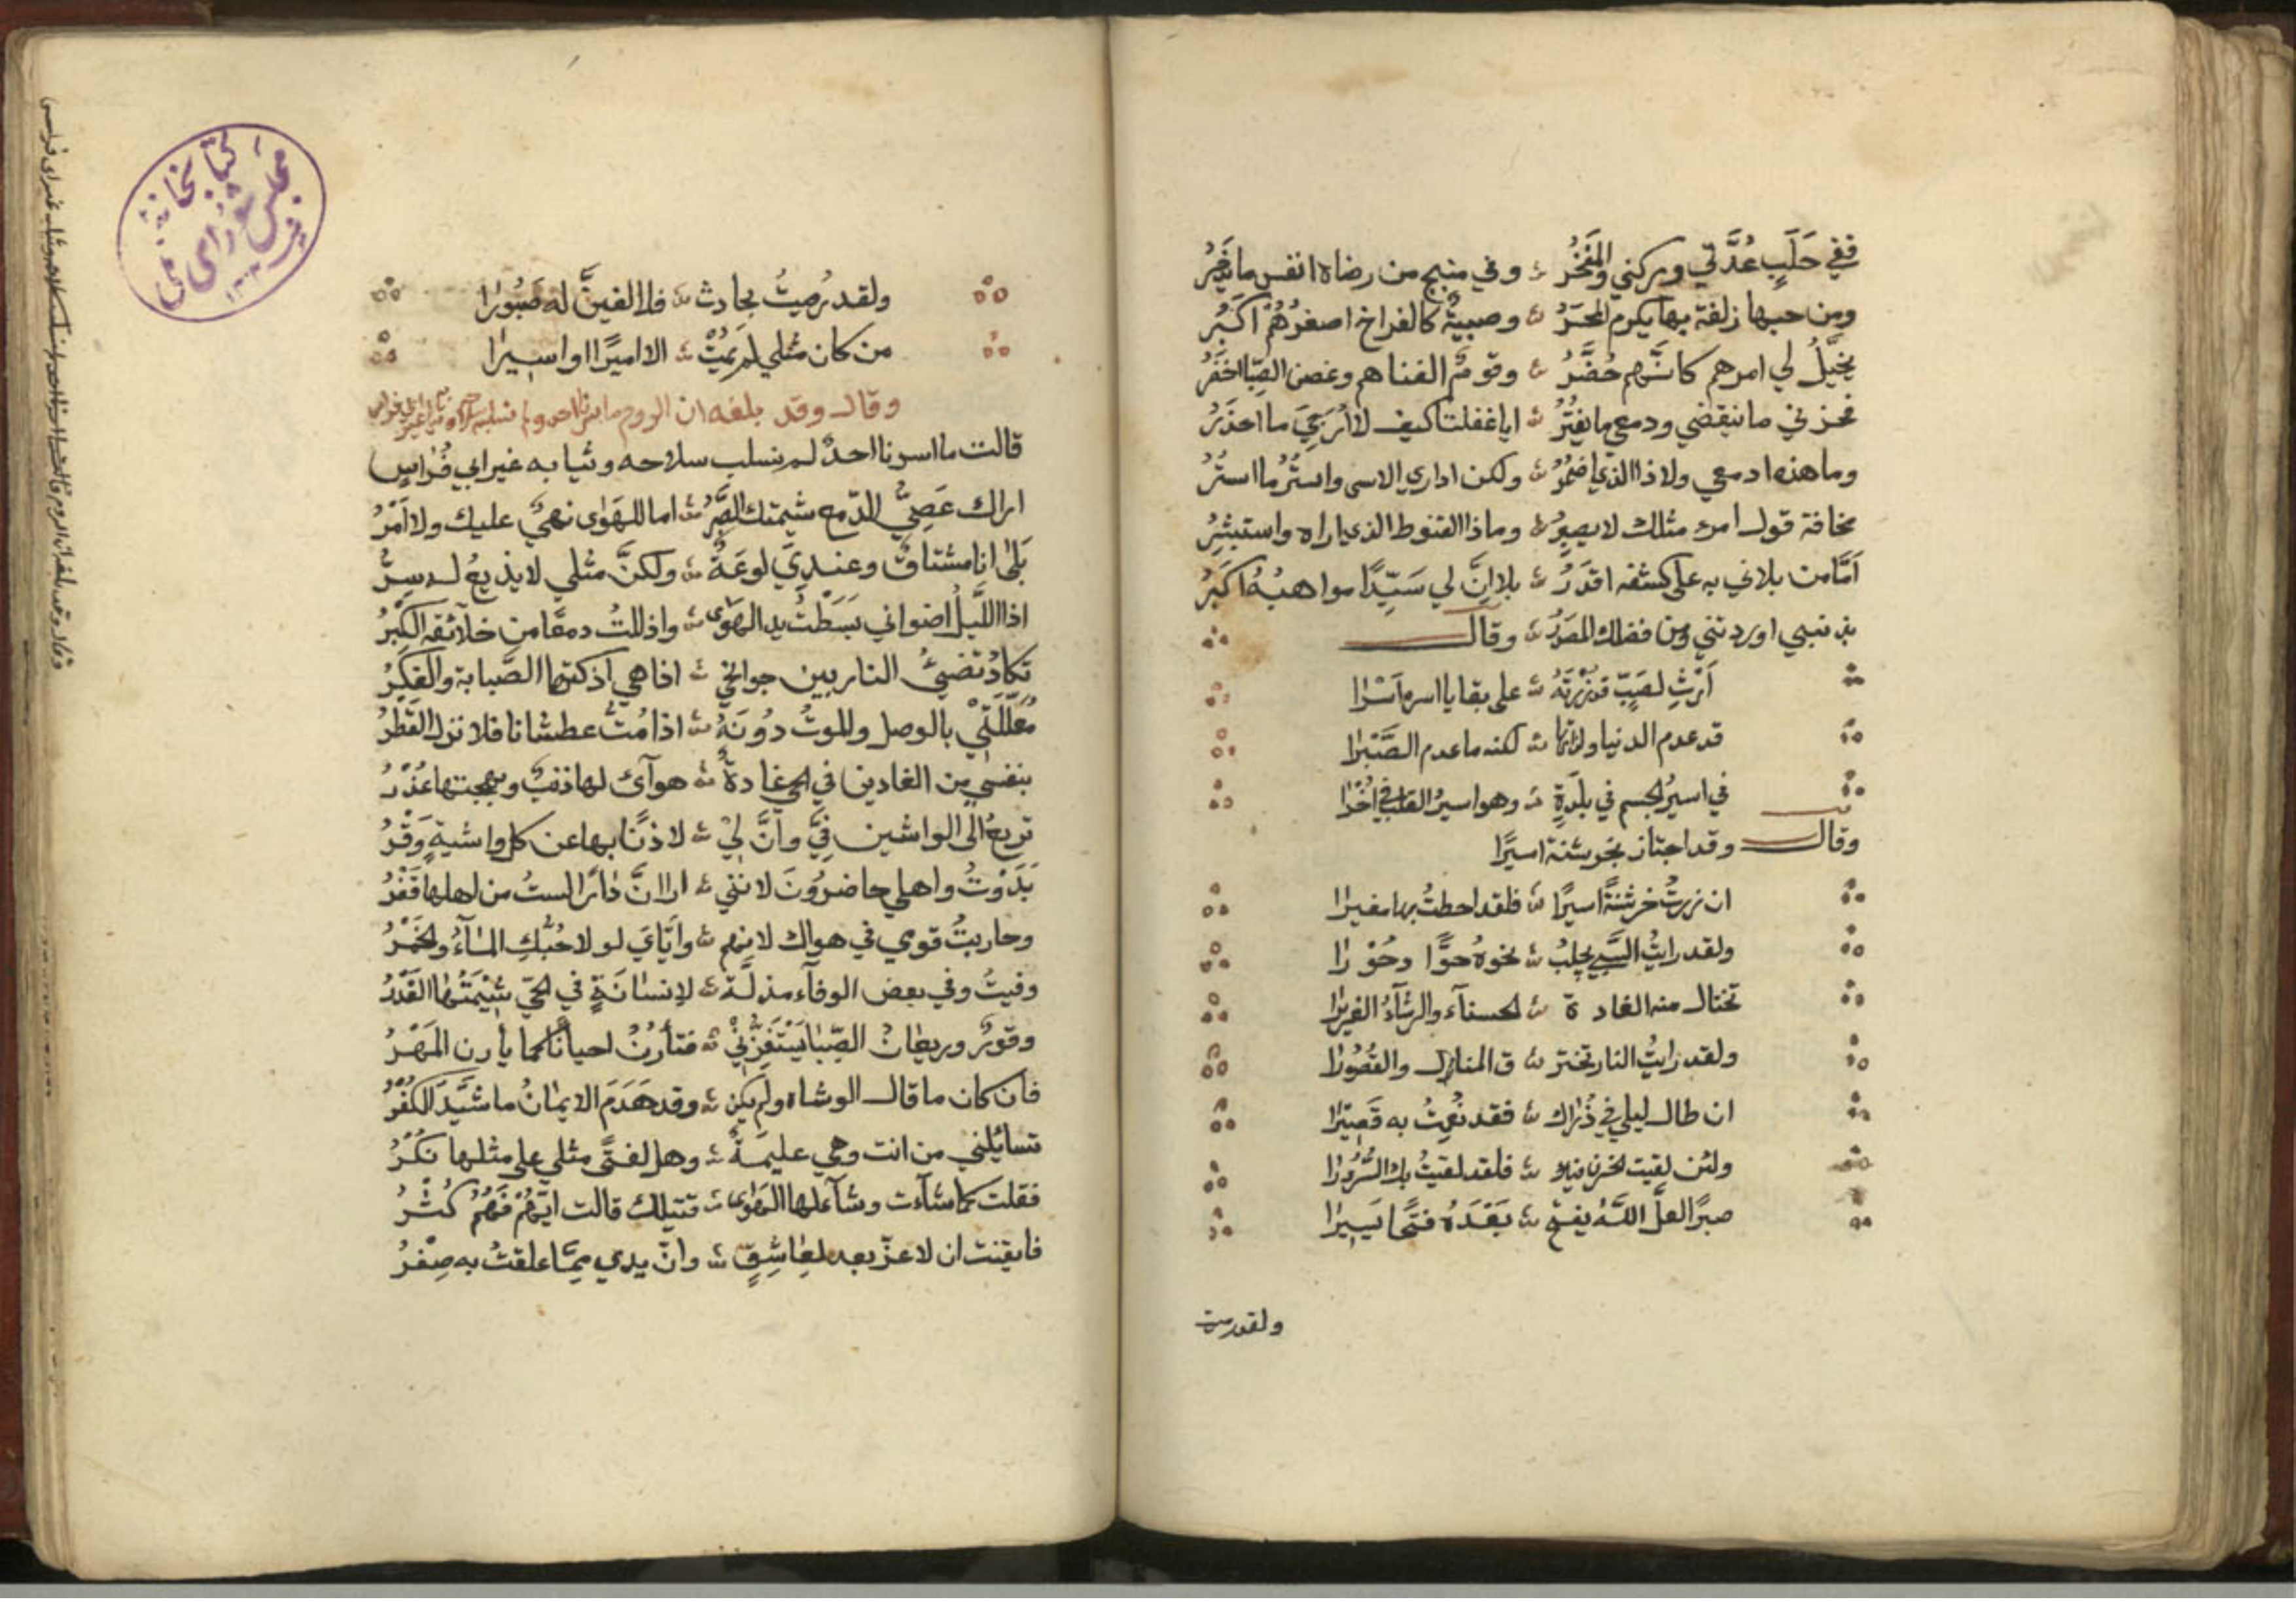 ففي حَلَبٍ عُدَّتي وركني والمَفْخَرُ ؞ وفي منبج من رضاه انفس ما يُذْخَرُ
ومن حبها زلفة بها يكرم المحشَرُ ؞ وصبيةٌ كالفراخ اصغرُهُمْ اكبَرُ
يخيَّلُ لي امرهم كانَّهم حُضَّرُ ؞ وقومٌ الفناهم وغصن الصِّبا اخضَرُ
فحزني ما ينقضي ودمعي ما يفتُرُ ؞ ايا غفلتا كيف لا أرتجيَ ما احذَرُ
وما هذه ادمعي ولا ذا الذي اضمُرُ ؞ ولكن اداري الاسى واستُرُ ما استُرُ
مخافة قول امرء مثلك لا يصبِرُ ؞ وماذا القنوط الذي اراه واستبشِرُ
اَمَّا من بلاني به على كشفه اقدَرُ ؞ بلا انَّ لي سَيِّدًا مواهبُهُ اكبَرُ
بذنبي اوردتني ومن فضلك المصدَرُ ؞ وقال
اَرْثِ لصَبٍّ قد زرْتَهُ ؞ على بقايا اسره اَسْرا
قد عدم الدنيا ولذاتها ؞ لكنه ما عدم الصَّبْرا
في اسيرُ الجسم في بلْدَةٍ ؞ وهو اسيرُ القلب في اُخْرا
وقال وقد اجتاز بخرشنة اسيرًا
ان زرتُ خرشنةً اسيرًا ؞ فلقد احطتُ بها مغيرا
ولقد رايتُ السَّبي يجلبُ ؞ نحوهُ حوًّا وحُوْرا
تختال منه الغادة ؞ الحسنآء والرشآءُ الغريرا
ولقد رايتُ النار تختر ؞ ق المنازل والقُصُورا
ان طال ليلي في ذُرٰاك ؞ فقد نُعِتُ به قَصِيْرا
ولئن لقيت الحزن فيك ؞ فلقد لقيتُ بك السُّرُورا
صبرًا لعلَّ اللّٰهُ يفتح ؞ بَعْدَهُ فتحًا يَسِيرا
ولقد رميت
ولقد رُميتُ بحادث ؞ فلا الفينَّ له صَبُورا
من كان مثلي لم يَمُتْ ؞ الا اميرًا او اسيرا
وقال وقد بلغه ان الروم
قالت ما اسرنا احدٌ لم نسلب سلاحه وثيابه غير ابي فُرٰاسٍ
اراك عَصِيَّ الدّمع شيمتك الصَّبْرُ ؞ اما للهَوٰى نهيٌ عليك ولا اَمْرُ
بَلٰى انا مشتاقٌ وعنديَ لوعَةٌ ؞ ولكنَّ مثلي لا يذيعُ له سِرُّ
اذا اللَّيلُ اضواني بَسَطْتُ يد الهَوٰى ؞ واذللتُ دمعًا من خلآئقه الكِبْرُ
تكادُ تضيءُ النار بين جوانحي ؞ اذا هي اَذكتها الصَّبابة والفِكْرُ
مُعَلِّلَتِيْ بالوصل والموتُ دُونَهُ ؞ اذا مُتُّ عطشانا فلا نزل القَطْرُ
بنفسي من الغادين في الحي غادةً ؞ هوآى لها ذنبٌ وبهجتها عُذْرُ
تريعُ الى الواشين فِيَّ واَنَّ لِيْ ؞ لاذنًا بها عن كل واشيةٍ وَقْرُ
بَدَوْتُ واهلي حاضرُونَ لانني ؞ ارا انَّ دٰارًا لستُ من اهلها قَفْرُ
وحاربتُ قومي في هواك لانهم ؞ واَيّايَ لو لا حُبُّكِ المٰآءُ والخَمْرُ
وفيتُ وفي بعض الوفآء مذلَّةٌ ؞ لإنسٰانَةٍ في الحيّ شِيْمَتُهٰا الغَدْرُ
وقورٌ وريعانُ الصِّبا يَسْتَفِزُّنِيْ ؞ فتأرنُ احيانًا كما يأرن المَهْرُ
فان كان ما قال الوشاه ولم يكن ؞ وقد هَدَمَ الايمٰانُ ما شَيَّدَ الكُفْرُ
تسائلني من انت وهي عليمَةٌ ؞ وهل لفتًى مثلي على مثلها نُكْرُ
فقلت كما شآءت وشآء لها الهَوٰى ؞ قتيلك قالت ايّهُمْ فَهُمُ كُثْرُ
فايقنت ان لا عزّ بعد لعٰاشِقٍ ؞ وانّ يدي مِمّا علقتُ به صِفْرُ
كتابخانه
مجلس شورای ملی